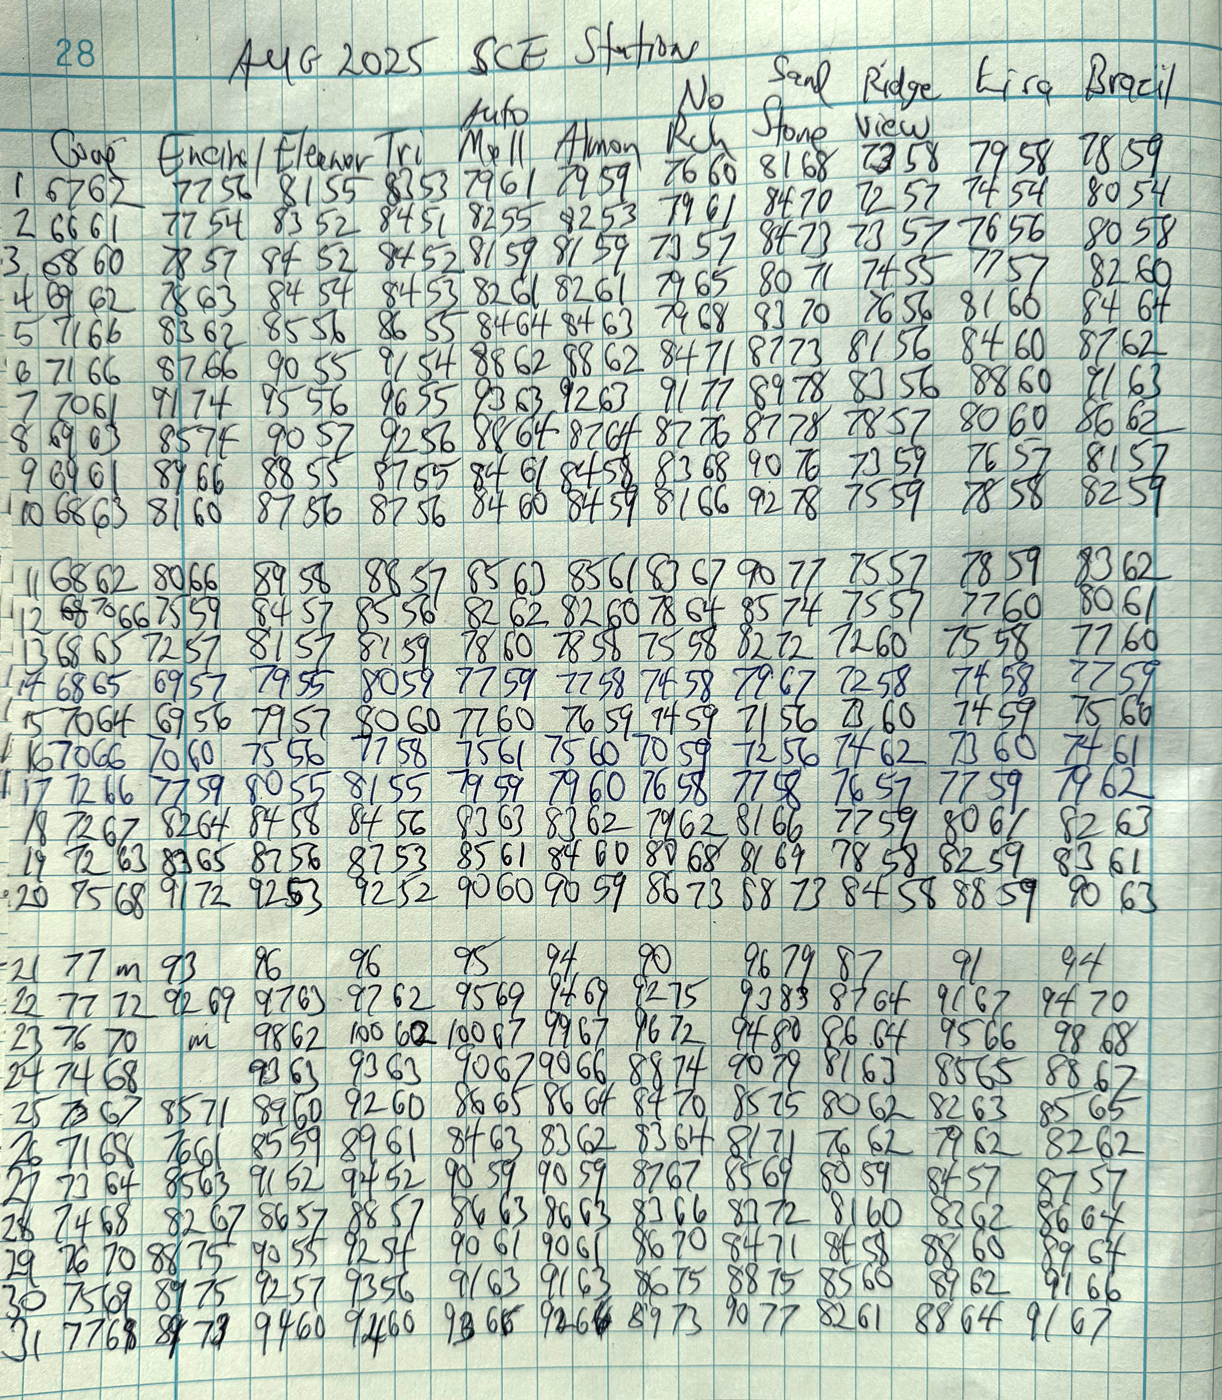 28
AUG 2025 SCE Stations
Auto No Sand Ridge Lisa Brazil
Encinal Eleanor Tri Mall Almon Rch Stone View
1 67 62 77 56 81 55 83 53 79 61 79 59 76 60 81 68 73 58 79 58 78 59
2 66 61 77 54 83 52 84 51 82 55 82 53 79 61 84 70 72 57 74 54 80 54
3 68 60 78 57 84 52 84 52 81 59 81 59 73 57 84 73 73 57 76 56 80 58
4 69 62 78 63 84 54 84 53 82 61 82 61 79 65 80 71 74 55 77 57 82 60
5 71 66 83 62 85 56 86 55 84 64 84 63 79 68 83 70 76 56 81 60 84 64
6 71 66 87 66 90 55 91 54 88 62 88 62 84 71 87 73 81 56 84 60 87 62
7 70 61 91 74 95 56 96 55 93 63 92 63 91 77 89 78 83 56 88 60 91 63
8 69 63 85 74 90 57 92 56 88 64 87 64 87 76 87 78 78 57 80 60 86 62
9 69 61 89 66 88 55 87 55 84 61 84 58 83 68 90 76 73 59 76 57 81 57
10 68 63 81 60 87 56 87 56 84 60 84 59 81 66 92 78 75 59 78 58 82 59
11 68 62 80 66 89 58 88 57 85 63 85 61 83 67 90 77 75 57 78 59 83 62
12 70 66 75 59 84 57 85 56 82 62 82 60 78 64 85 74 75 57 77 60 80 61
13 68 65 72 57 81 57 81 59 78 60 78 58 75 58 82 72 72 60 75 58 77 60
14 68 65 69 57 79 55 80 59 77 59 77 58 74 58 79 67 72 58 74 58 77 59
15 70 64 69 56 79 57 80 60 77 60 76 59 74 59 71 56 73 60 74 59 75 60
16 70 66 70 60 75 56 77 58 75 61 75 60 70 59 72 56 74 62 73 60 74 61
17 72 66 77 59 80 55 81 55 79 59 79 60 76 58 77 58 76 57 77 59 79 62
18 72 67 82 64 84 58 84 56 83 63 83 62 79 62 81 66 77 59 80 61 82 63
19 72 63 83 65 87 56 87 53 85 61 84 60 80 68 81 69 78 58 82 59 83 61
20 75 68 91 72 92 53 92 52 90 60 90 59 86 73 88 73 84 58 88 59 90 63
21 77 m 93 96 96 95 94 90 96 79 87 91 94
22 77 72 92 69 97 63 97 62 95 69 94 69 92 75 93 83 87 64 91 67 94 70
23 76 70 m 98 62 100 62 100 67 99 67 96 72 94 80 86 64 95 66 98 68
24 74 68 93 63 93 63 90 67 90 66 88 74 90 79 81 63 85 65 88 67
25 73 67 85 71 89 60 92 60 86 65 86 64 84 70 85 75 80 62 82 63 85 65
26 71 68 76 61 85 59 89 61 84 63 83 62 83 64 81 71 76 62 79 62 82 62
27 73 64 85 63 91 52 94 52 90 59 90 59 87 67 85 69 80 59 84 57 87 57
28 74 68 82 67 86 57 88 57 86 63 86 63 83 66 83 72 81 60 83 62 86 64
29 76 70 88 75 90 55 92 54 90 61 90 61 86 70 84 71 84 58 88 60 89 64
30 75 69 89 75 92 57 93 56 91 63 91 63 86 75 88 75 85 60 89 62 91 66
31 77 68 94 60 92 60 89 73 90 77 82 61 88 64 91 67